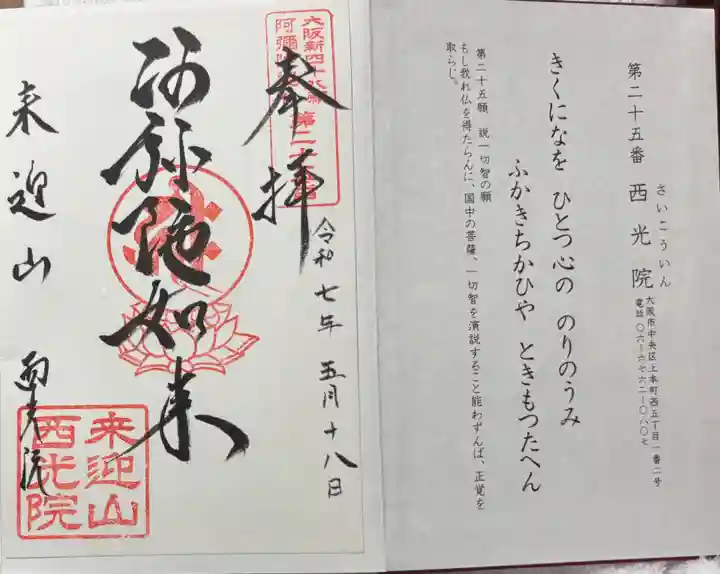 第二十五番 西光院
さいこういん
大阪市中央区上本町西五丁目一番二号
電話 〇六-六七六二-〇八〇七
きくになを ひとつ心の のりのうみ
ふかきちかひや ときもつたへん
第二十五願 説一切智の願
もし我れ仏を得たらんに、国中の菩薩、一切智を演説すること能わずんば、正覚を
取らじ。
大阪新四十八願
阿彌
第二十五番
奉拝
令和七年五月十八日
阿弥陀如来
来迎山 西光院
来迎山
西光院